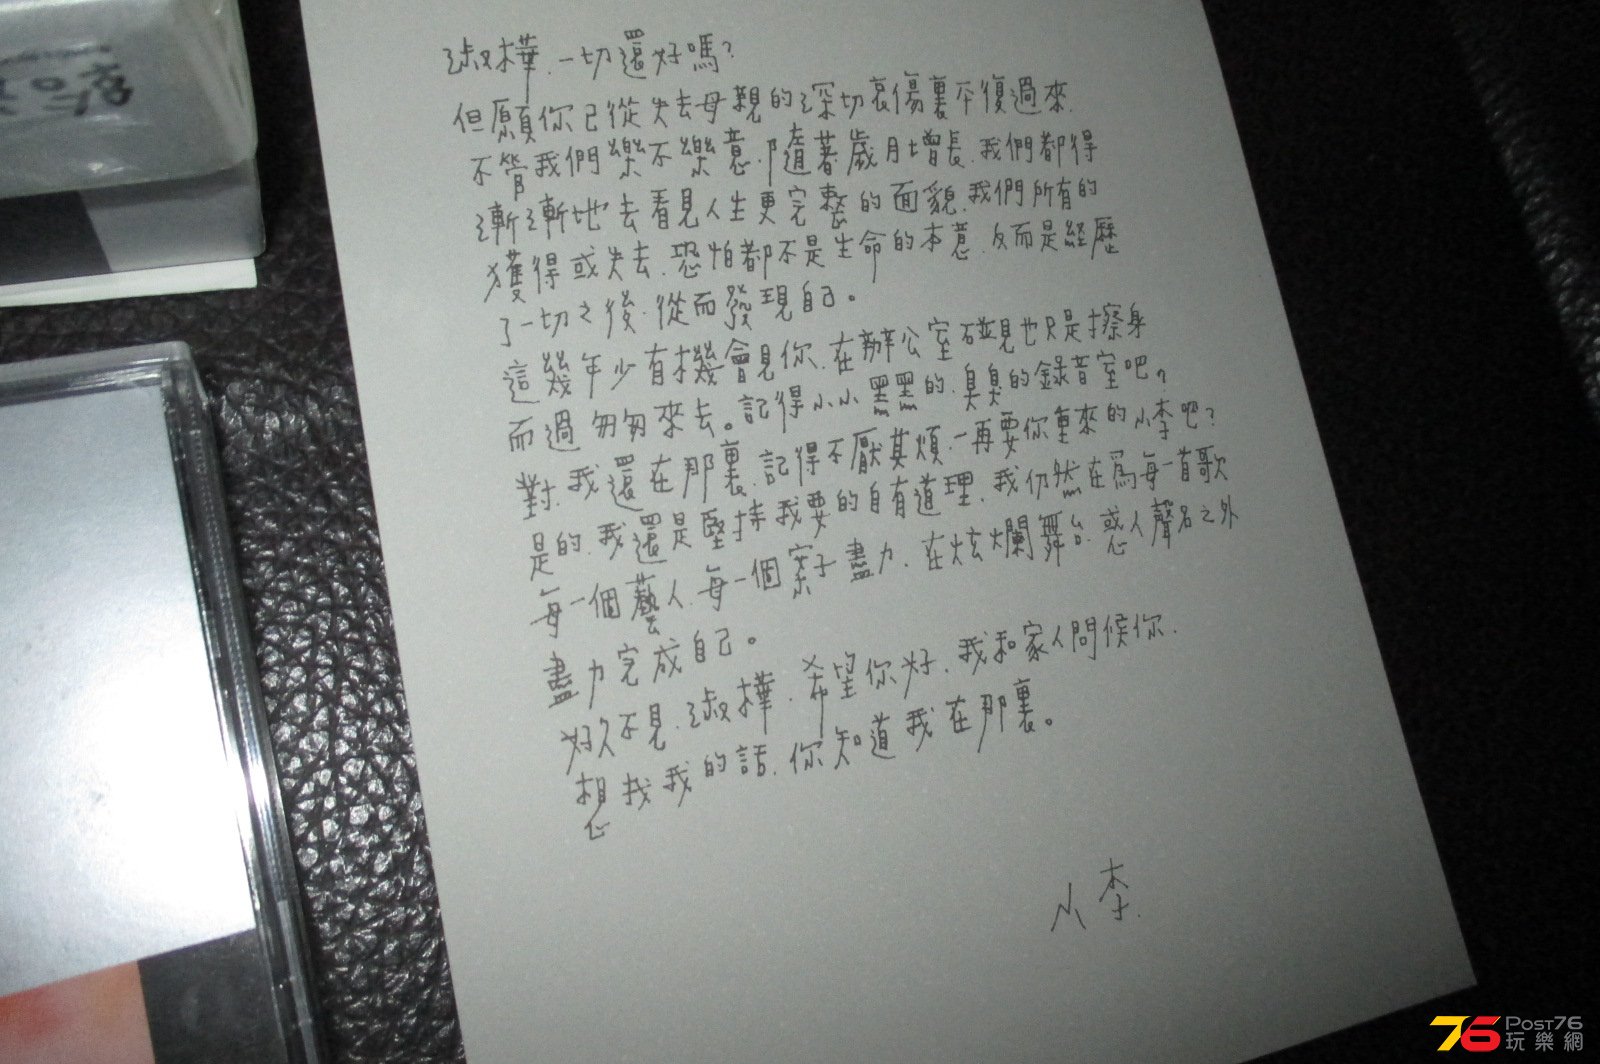 淑樺.一切還好嗎?
但願你已從失去母親的深切哀傷裏平復過來.
不管我們樂不樂意.隨著歲月增長.我們都得
漸漸地去看見人生更完整的面貌.我們所有的
獲得或失去.恐怕都不是生命的本意.反而是經歷
了一切之後.從而發現自己。
這幾年少有機會見你.在辦公室碰見也只是擦身
而過匆匆來去。記得小小黑黑的.臭臭的錄音室吧?
對.我還在那裏.記得不厭其煩.一再要你重來的小李吧?
是的.我還是堅持我要的自有道理.我仍然在為每一首歌
每一個藝人.每一個案子盡力.在炫爛舞台.惑人聲名之外
盡力完成自己。
好久不見.淑樺.希望你好.我和家人問候你.
想找我的話.你知道我在那裏。
小李.
76 POST76
玩樂網